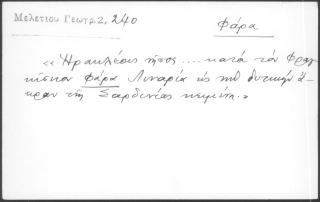 Μελετίου Γεωγρ. 2, 240
Φάρα
« Ἡρακλέους νῆσος .... κατά τόν Φραγ
κῖσκον Φάρα Λιναρία εἰς τήν δυτικήν ἄ-
κραν τῆς Σαρδινίας κειμένη. »